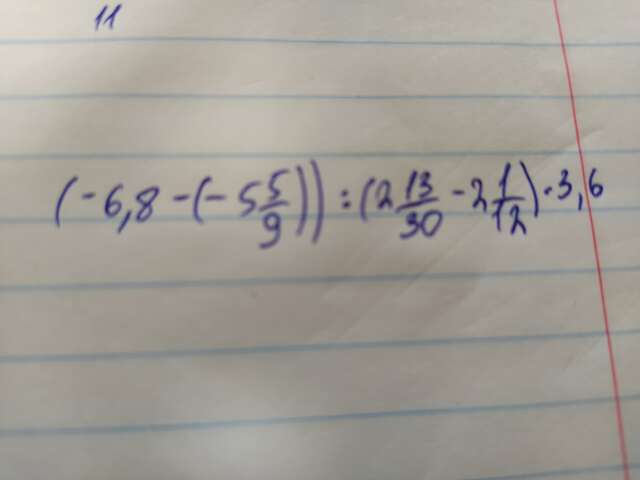 11
(-6,8-(-5 5/9)):(2 13/30-2 1/12)·3,6